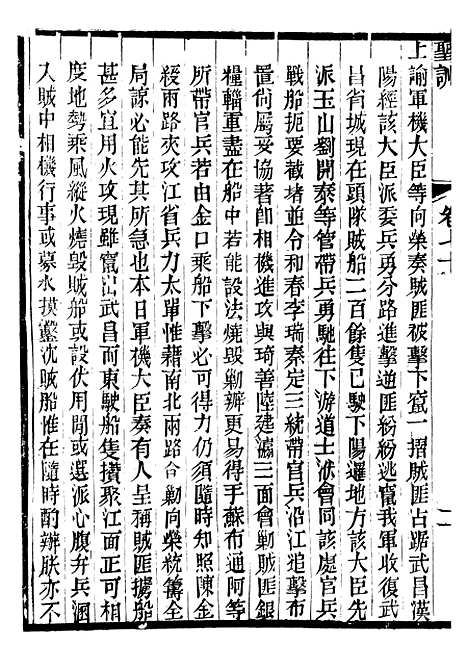 聖訓
卷七十
上諭軍機大臣等向榮奏賊匪被擊下竄一摺賊匪占踞武昌漢
陽經該大臣派委兵勇分路進擊逆匪紛紛逃竄我軍收復武
昌省城現在頭隊賊船二百餘隻已駛下陽邏地方該大臣先
派玉山劉開泰等管帶兵勇馳往下游道士洑會同該處官兵
戰船扼要截堵並令和春李瑞秦定三統帶官兵沿江追擊布
置尙屬妥協著卽相機進攻與琦善陸建瀛三面會勦賊匪銀
糧輜重盡在船中若能設法燒毀勦辦更易得手蘇布通阿等
所帶官兵若由金口乘船下擊必可得力仍須隨時知照陳金
綬兩路夾攻江省兵力太單惟藉南北兩路合勦向榮統籌全
局諒必能先其所急也本日軍機大臣奏有人呈稱賊匪擄船
甚多宜用火攻現雖竄出武昌而東駛船隻攢聚江面正可相
度地勢乘風縱火燒毀賊船或設伏用間或選派心腹弁兵溷
入賊中相機行事或募水摸鑿沈賊船惟在隨時酌辦朕亦不